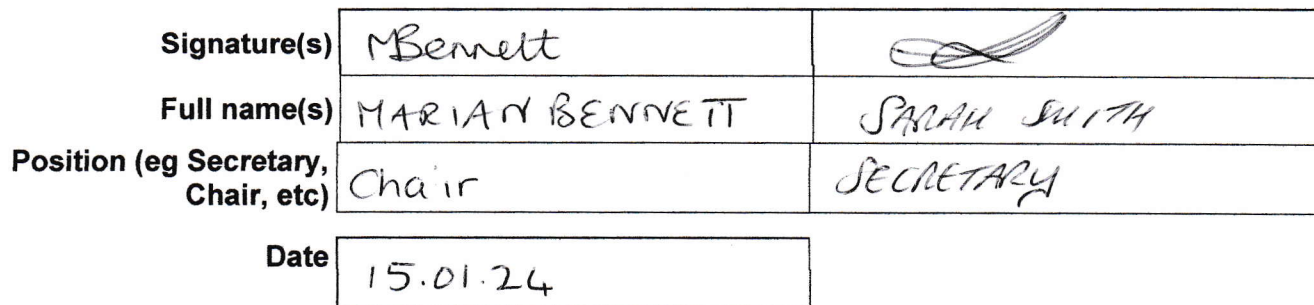 Signature(s) MBennett
Full name(s) MARIAN BENNETT SARAH SMITH
Position (eg Secretary, Chair SECRETARY
Chair, etc)
Date 15.01.24